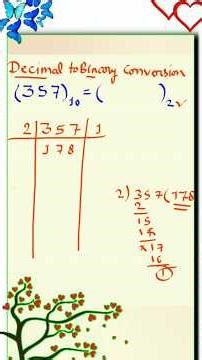 Decimal to Binary Conversion
(357)₁₀ = ( )₂
2 | 357 | 1
178
2) 357 ( 178
2
15
14
17
16
1